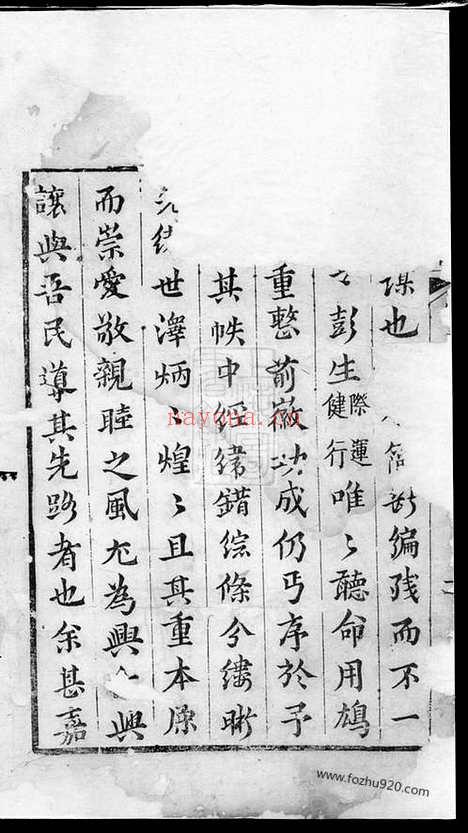 也 編殘而不一
彭生際運健行唯〻聽命用鳩
重整前徽功成仍丐序於予
其帙中經緯錯綜條分縷晰
世澤炳〻煌〻且其重本源
而崇愛敬親睦之風尤為興 興
讓與吾民導其先路者也余甚嘉
nayona.cn
www.fozhu920.com